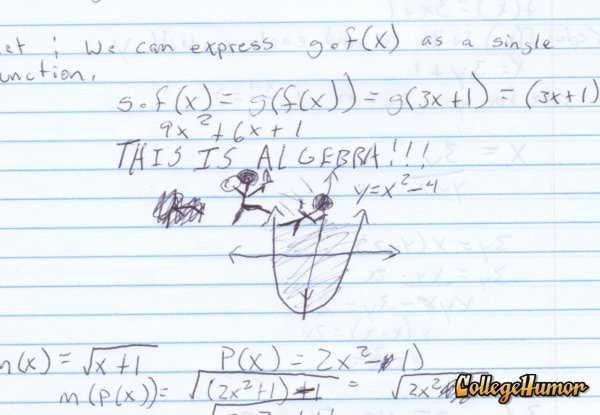 et ; We can express g∘f(x) as a single
unction.
g∘f(x) = g(f(x)) = g(3x+1) = (3x+1)
9x²+6x+1
THIS IS ALGEBRA!!!
y=x²-4
n(x) = √x+1 P(x) = 2x²-1
m(p(x)) = √(2x²+1)+1 = √2x²
CollegeHumor